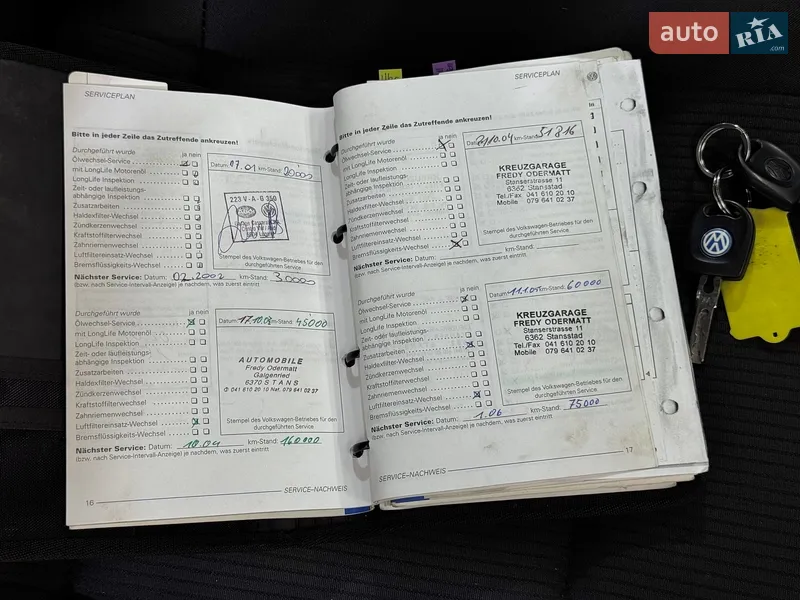 auto RIA .com
SERVICEPLAN
Bitte in jeder Zeile das Zutreffende ankreuzen!
Durchgeführt wurde ja nein
Ölwechsel-Service
mit LongLife Motorenöl
LongLife Inspektion
Zeit- oder laufleistungs-
abhängige Inspektion
Zusatzarbeiten
Haldexfilter-Wechsel
Zündkerzenwechsel
Kraftstofffilterwechsel
Zahnriemenwechsel
Luftfiltereinsatz-Wechsel
Bremsflüssigkeits-Wechsel
Datum: 07.01 km-Stand:
223 V·A·G 350
Stempel des Volkswagen-Betriebes für den
durchgeführten Service
Nächster Service: Datum: 02.2002 km-Stand: 30000
(bzw. nach Service-Intervall-Anzeige) je nachdem, was zuerst eintritt
Durchgeführt wurde ja nein
Ölwechsel-Service
mit LongLife Motorenöl
LongLife Inspektion
Zeit- oder laufleistungs-
abhängige Inspektion
Zusatzarbeiten
Haldexfilter-Wechsel
Zündkerzenwechsel
Kraftstofffilterwechsel
Zahnriemenwechsel
Luftfiltereinsatz-Wechsel
Bremsflüssigkeits-Wechsel
Datum: 17.10.03 km-Stand: 45000
AUTOMOBILE
Fredy Odermatt
Galgenried
6370 STANS
041 610 20 10 Nat. 079 641 02 37
Stempel des Volkswagen-Betriebes für den
durchgeführten Service
Nächster Service: Datum: 10.04 km-Stand:
(bzw. nach Service-Intervall-Anzeige) je nachdem, was zuerst eintritt
16
SERVICE-NACHWEIS
SERVICEPLAN
Bitte in jeder Zeile das Zutreffende ankreuzen!
Durchgeführt wurde ja nein
Ölwechsel-Service
mit LongLife Motorenöl
LongLife Inspektion
Zeit- oder laufleistungs-
abhängige Inspektion
Zusatzarbeiten
Haldexfilter-Wechsel
Zündkerzenwechsel
Kraftstofffilterwechsel
Zahnriemenwechsel
Luftfiltereinsatz-Wechsel
Bremsflüssigkeits-Wechsel
km-Stand: 51816
KREUZGARAGE
FREDY ODERMATT
Stanserstrasse 11
6362 Stansstad
Tel./Fax 041 610 20 10
Mobile 079 641 02 37
Stempel des Volkswagen-Betriebes für den
durchgeführten Service
Nächster Service: Datum: km-Stand:
(bzw. nach Service-Intervall-Anzeige) je nachdem, was zuerst eintritt
Durchgeführt wurde ja nein
Ölwechsel-Service
mit LongLife Motorenöl
LongLife Inspektion
Zeit- oder laufleistungs-
abhängige Inspektion
Zusatzarbeiten
Haldexfilter-Wechsel
Zündkerzenwechsel
Kraftstofffilterwechsel
Zahnriemenwechsel
Luftfiltereinsatz-Wechsel
Bremsflüssigkeits-Wechsel
Datum: 11.1.05 km-Stand: 60000
KREUZGARAGE
FREDY ODERMATT
Stanserstrasse 11
6362 Stansstad
Tel./Fax 041 610 20 10
Mobile 079 641 02 37
Stempel des Volkswagen-Betriebes für den
durchgeführten Service
Nächster Service: Datum: 1.06 km-Stand: 75000
(bzw. nach Service-Intervall-Anzeige) je nachdem, was zuerst eintritt
17
SERVICE-NACHWEIS